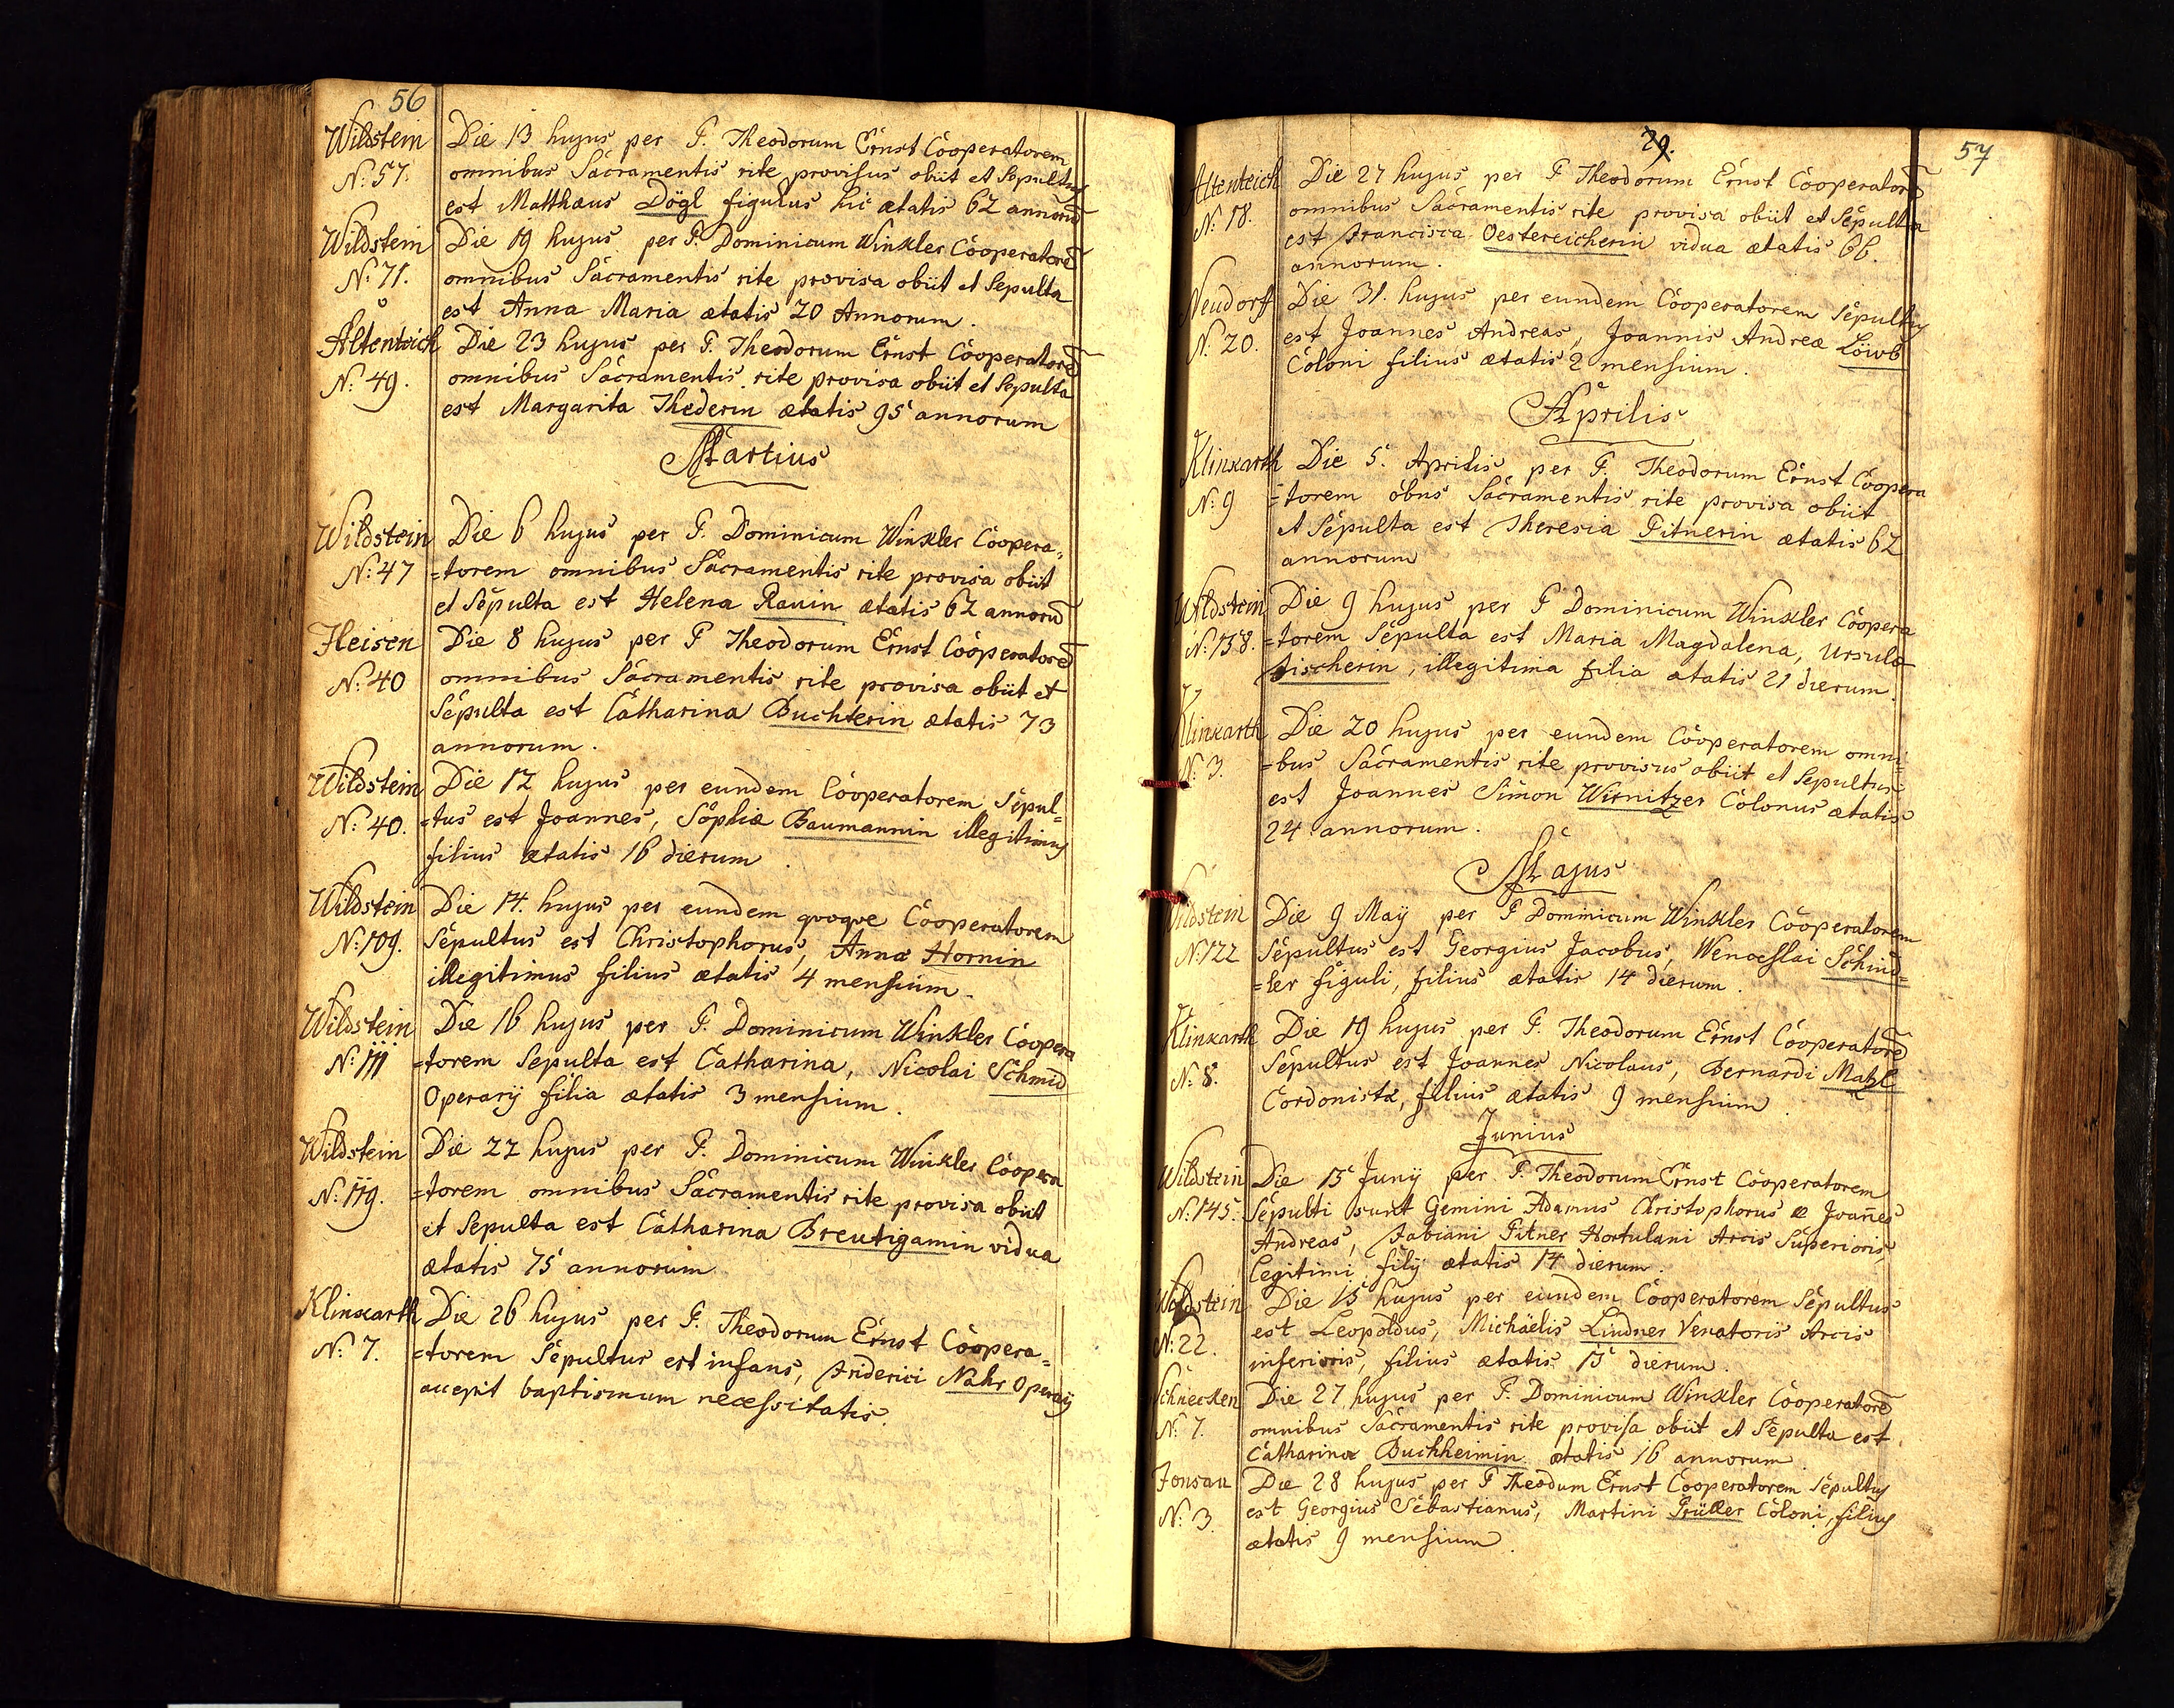 56
Wildstein Die 13 hujus per P. Theodorum Ernst Cooperatorem
N: 57. omnibus Sacramentis rite provisus obiit et Sepultus
est Matthæus Dögl figulus hic ætatis 62 annorū
Wildstein Die 19 hujus per P. Dominicum Winkler Cooperatorē
N: 71. omnibus Sacramentis rite provisa obiit et Sepulta
est Anna Maria ætatis 20 Annorum.
Altenteich Die 23 hujus per P. Theodorum Ernst Cooperatorē
N: 49. omnibus Sacramentis rite provisa obiit et Sepulta
est Margarita Thederin ætatis 95 annorum
Martius
Wildstein Die 6 hujus per P. Dominicum Winkler Coopera=
N: 47 =torem omnibus Sacramentis rite provisa obiit
et Sepulta est Helena Rauin ætatis 62 annorū
Fleisen Die 8 hujus per P Theodorum Ernst Cooperatorē
N: 40 omnibus Sacramentis rite provisa obiit et
Sepulta est Catharina Buchterin ætatis 73
annorum.
Wildstein Die 12 hujus per eundem Cooperatorem Sepul=
N: 40. =tus est Joannes, Sophiæ Baumannin illegitimus
filius ætatis 16 dierum.
Wildstein Die 14. hujus per eundem qvoqve Cooperatorem
N: 109. Sepultus est Christophorus, Annæ Hornin
illegitimus filius ætatis 4 mensium.
Wildstein Die 16 hujus per P. Dominicum Winkler Coopera
N: 111 =torem Sepulta est Catharina, Nicolai Schmid
Operarij filia ætatis 3 mensium.
Wildstein Die 22 hujus per P. Dominicum Winkler Coopera
N: 119. =torem omnibus Sacramentis rite provisa obiit
et Sepulta est Catharina Breutigamin vidua
ætatis 75 annorum
Klinkarth Die 26 hujus per P. Theodorum Ernst Coopera=
N: 7. =torem Sepultus est infans, Friderici Nahr Operarij
accepit baptismum necessitatis.
29.
57
Altenteich Die 27 hujus per P Theodorum Ernst Cooperatorē
N: 18. omnibus Sacramentis rite provisa obiit et Sepulta
est Francisca Oestereicherin vidua ætatis 66.
annorum.
Neudorff Die 31. hujus per eundem Cooperatorem Sepultus
N. 20. est Joannes Andreas, Joannis Andreæ Löwb
Coloni filius ætatis 2 mensium.
Aprilis
Klinkarth Die 5. Aprilis per P. Theodorum Ernst Coopera
N: 9 =torem obus Sacramentis rite provisa obiit
et Sepulta est Theresia Pitnerin ætatis 62
annorum
Wildstein Die 9 hujus per P Dominicum Winkler Coopera
N: 158. =torem Sepulta est Maria Magdalena, Ursulæ
tischerin, illegitima filia ætatis 21 dierum.
Klinkarth Die 20 hujus per eundem Cooperatorem omni=
N: 3. =bus Sacramentis rite provisus obiit et Sepultus
est Joannes Simon Wirnitzer Colonus ætatis
24 annorum.
Majus
Wildstein Die 9 Maÿ per P Dominicum Winkler Cooperatorem
N: 122 Sepultus est Georgius Jacobus, Wenceslai Schind=
=ler figuli, filius ætatis 14 dierum.
Klinkarth Die 19 hujus per P. Theodorum Ernst Cooperatorē
N: 8. Sepultus est Joannes Nicolaus, Bernardi Mahl
Cordonistæ, filius ætatis 9 mensium.
Junius
Wildstein Die 15 Junÿ per P. Theodorum Ernst Cooperatorem
N: 145. Sepulti sunt Gemini Adamus Christophorus e Joañes
Andreas, Fabiani Pitner Hortulani Arcis Superioris,
legitimi filÿ ætatis 14 dierum.
Wildstein Die 15 hujus per eundem Cooperatorem Sepultus
N: 22. est Leopoldus, Michäelis Lindner Venatoris Arcis
inferioris, filius ætatis 15 dierum.
Schnecken Die 27 hujus per P. Dominicum Winkler Cooperatorē
N: 7. omnibus Sacramentis rite provisa obiit et Sepulta est
Catharina Buchheimin ætatis 16 annorum.
Fonsau Die 28 hujus per P Theodum Ernst Cooperatorem Sepultus
N: 3. est Georgius Sebastianus, Martini Prüller Coloni, filius
ætatis 9 mensium.